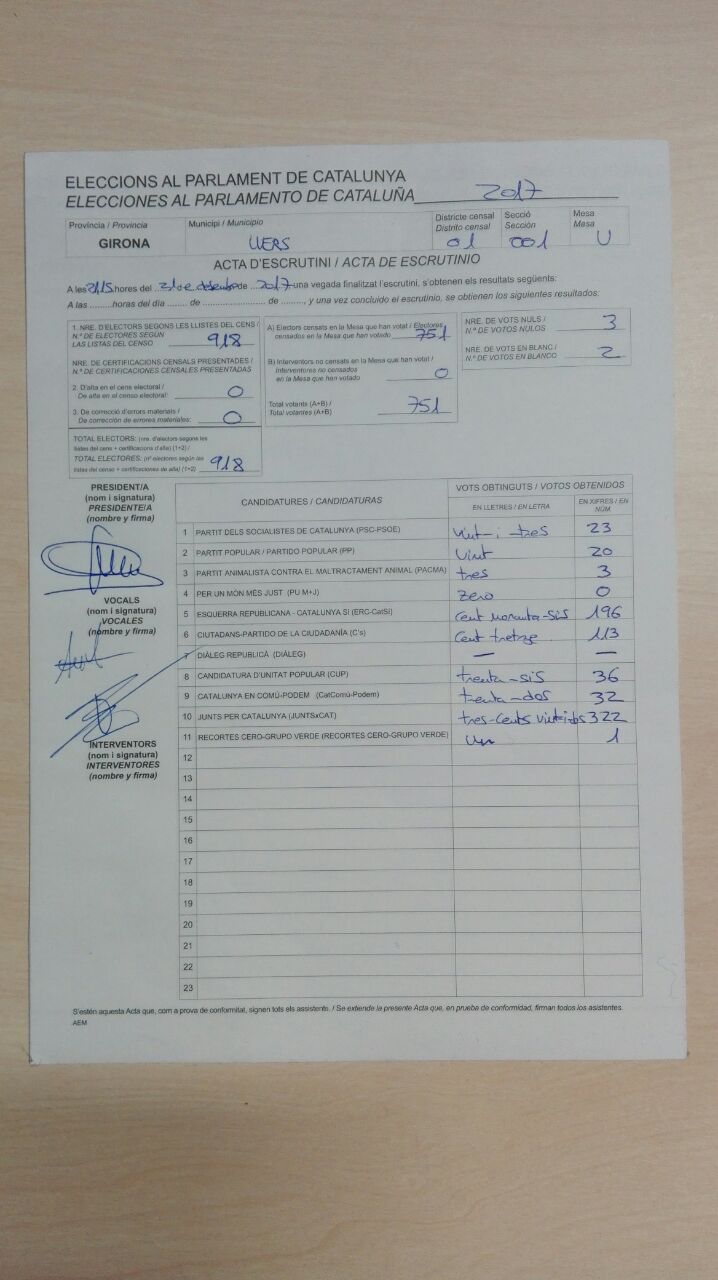 ELECCIONS AL PARLAMENT DE CATALUNYA
ELECCIONES AL PARLAMENTO DE CATALUÑA 2017
Província / Provincia Municipi / Municipio Districte censal Secció Mesa
Distrito censal Sección Mesa
GIRONA 01 001 U
ACTA D'ESCRUTINI / ACTA DE ESCRUTINIO
A les 21:15 hores del 21 de desembre de 2017 una vegada finalitzat l'escrutini, s'obtenen els resultats següents:
A las ......... horas del día ....... de ........................... de ........, y una vez concluido el escrutinio, se obtienen los siguientes resultados:
1. NRE. D'ELECTORS SEGONS LES LLISTES DEL CENS /
N.º DE ELECTORES SEGÚN
LAS LISTAS DEL CENSO 918
NRE. DE CERTIFICACIONS CENSALS PRESENTADES /
N.º DE CERTIFICACIONES CENSALES PRESENTADAS
2. D'alta en el cens electoral /
De alta en el censo electoral: 0
3. De correcció d'errors materials /
De corrección de errores materiales: 0
TOTAL ELECTORS: (nre. d'electors segons les
llistes del cens + certificacions d'alta) (1+2) /
TOTAL ELECTORES: (nº electores según las
listas del censo + certificaciones de alta) (1+2) 918
A) Electors censats en la Mesa que han votat / Electores
censados en la Mesa que han votado 751
B) Interventors no censats en la Mesa que han votat /
Interventores no censados
en la Mesa que han votado 0
Total votants (A+B) /
Total votantes (A+B) 751
NRE. DE VOTS NULS /
N.º DE VOTOS NULOS 3
NRE. DE VOTS EN BLANC /
N.º DE VOTOS EN BLANCO 2
PRESIDENT/A
(nom i signatura)
PRESIDENTE/A
(nombre y firma)
VOCALS
(nom i signatura)
VOCALES
(nombre y firma)
INTERVENTORS
(nom i signatura)
INTERVENTORES
(nombre y firma)
CANDIDATURES / CANDIDATURAS VOTS OBTINGUTS / VOTOS OBTENIDOS
EN LLETRES / EN LETRA EN XIFRES / EN NÚM.
1 PARTIT DELS SOCIALISTES DE CATALUNYA (PSC-PSOE) vint-i-tres 23
2 PARTIT POPULAR / PARTIDO POPULAR (PP) vint 20
3 PARTIT ANIMALISTA CONTRA EL MALTRACTAMENT ANIMAL (PACMA) tres 3
4 PER UN MÓN MÉS JUST (PU M+J) zero 0
5 ESQUERRA REPUBLICANA - CATALUNYA SÍ (ERC-CatSí) cent noranta-sis 196
6 CIUTADANS-PARTIDO DE LA CIUDADANÍA (C's) cent tretze 113
7 DIÀLEG REPUBLICÀ (DIÀLEG) — —
8 CANDIDATURA D'UNITAT POPULAR (CUP) trenta-sis 36
9 CATALUNYA EN COMÚ-PODEM (CatComú-Podem) trenta-dos 32
10 JUNTS PER CATALUNYA (JUNTSxCAT) tres-cents vint-i-dos 322
11 RECORTES CERO-GRUPO VERDE (RECORTES CERO-GRUPO VERDE) un 1
12
13
14
15
16
17
18
19
20
21
22
23
S'estén aquesta Acta que, com a prova de conformitat, signen tots els assistents. / Se extiende la presente Acta que, en prueba de conformidad, firman todos los asistentes.
AEM